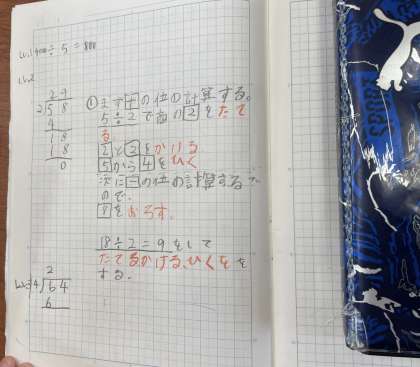 ÷ 5 = 800
29
2)58
4
18
18
0
①まず十の位の計算する。
5÷2で商の2をたて
る。
2と2をかける
5から4をひく
次に一の位の計算するで
ので、
8をおろす。
18÷2=9をして
たてるかける、ひくをを
する。
2
4)64
6